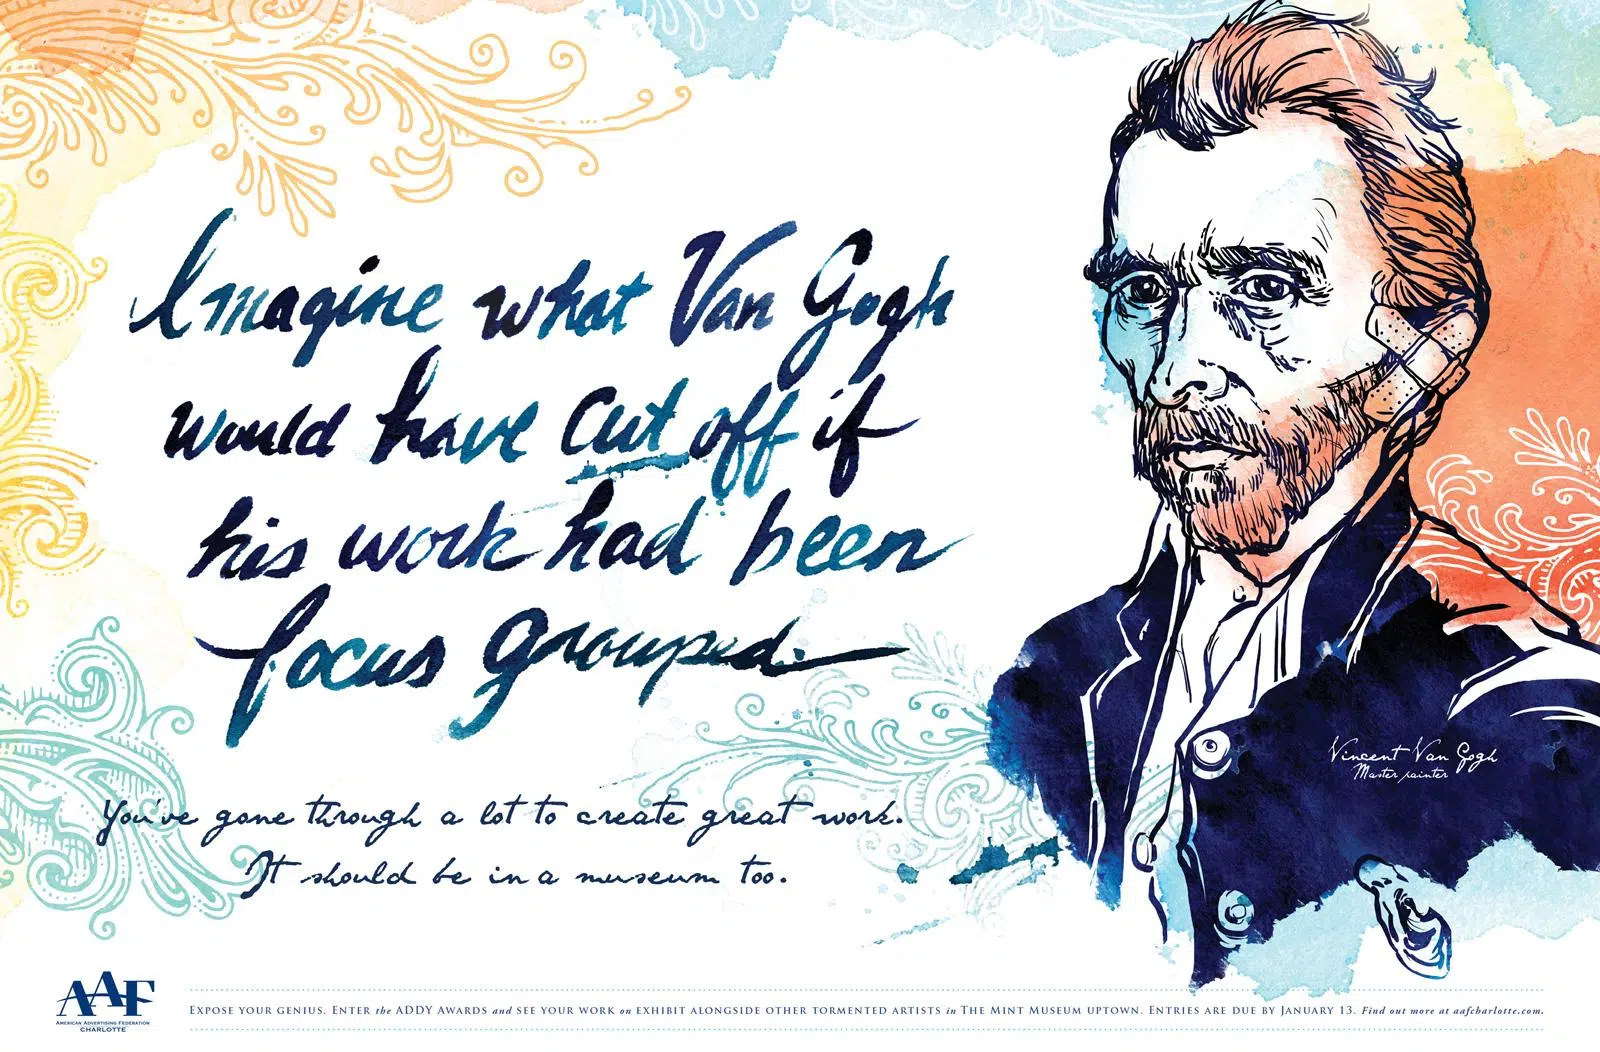 Imagine what Van Gogh
would have cut off if
his work had been
focus grouped.
You've gone through a lot to create great work.
It should be in a museum too.
Vincent Van Gogh
Master painter
AAF
AMERICAN ADVERTISING FEDERATION
CHARLOTTE
EXPOSE YOUR GENIUS. ENTER the ADDY AWARDS and SEE YOUR WORK on EXHIBIT ALONGSIDE OTHER TORMENTED ARTISTS in THE MINT MUSEUM UPTOWN. ENTRIES ARE DUE BY JANUARY 13. Find out more at aafcharlotte.com.